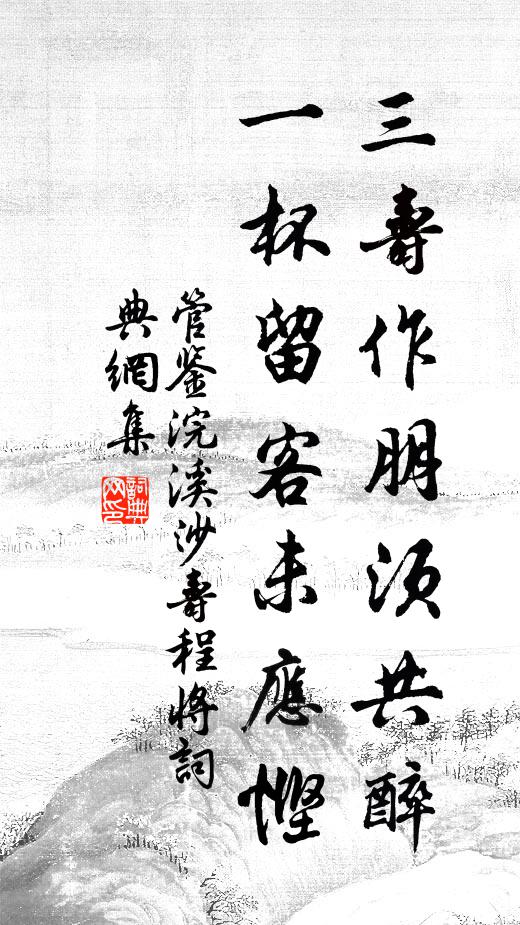 三壽作朋須共醉
一杯留客未應慳
管鉴浣溪沙壽程將詞
典網集
詞典
网印